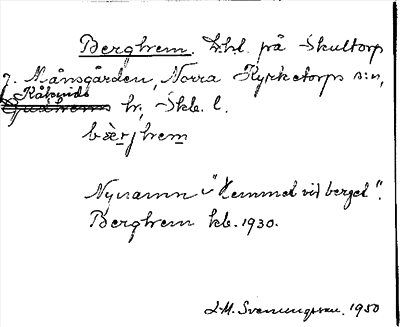 Berghem. Lhl. på Skultorp
7. Månsgården, Norra Kyrketorps s:n,
Kåkinds
Gudhems hr, Skb. l.
bærjhem
Nynamn "Hemmet vid berget".
Berghem kb. 1930.
L.M. Svenungsson. 1950